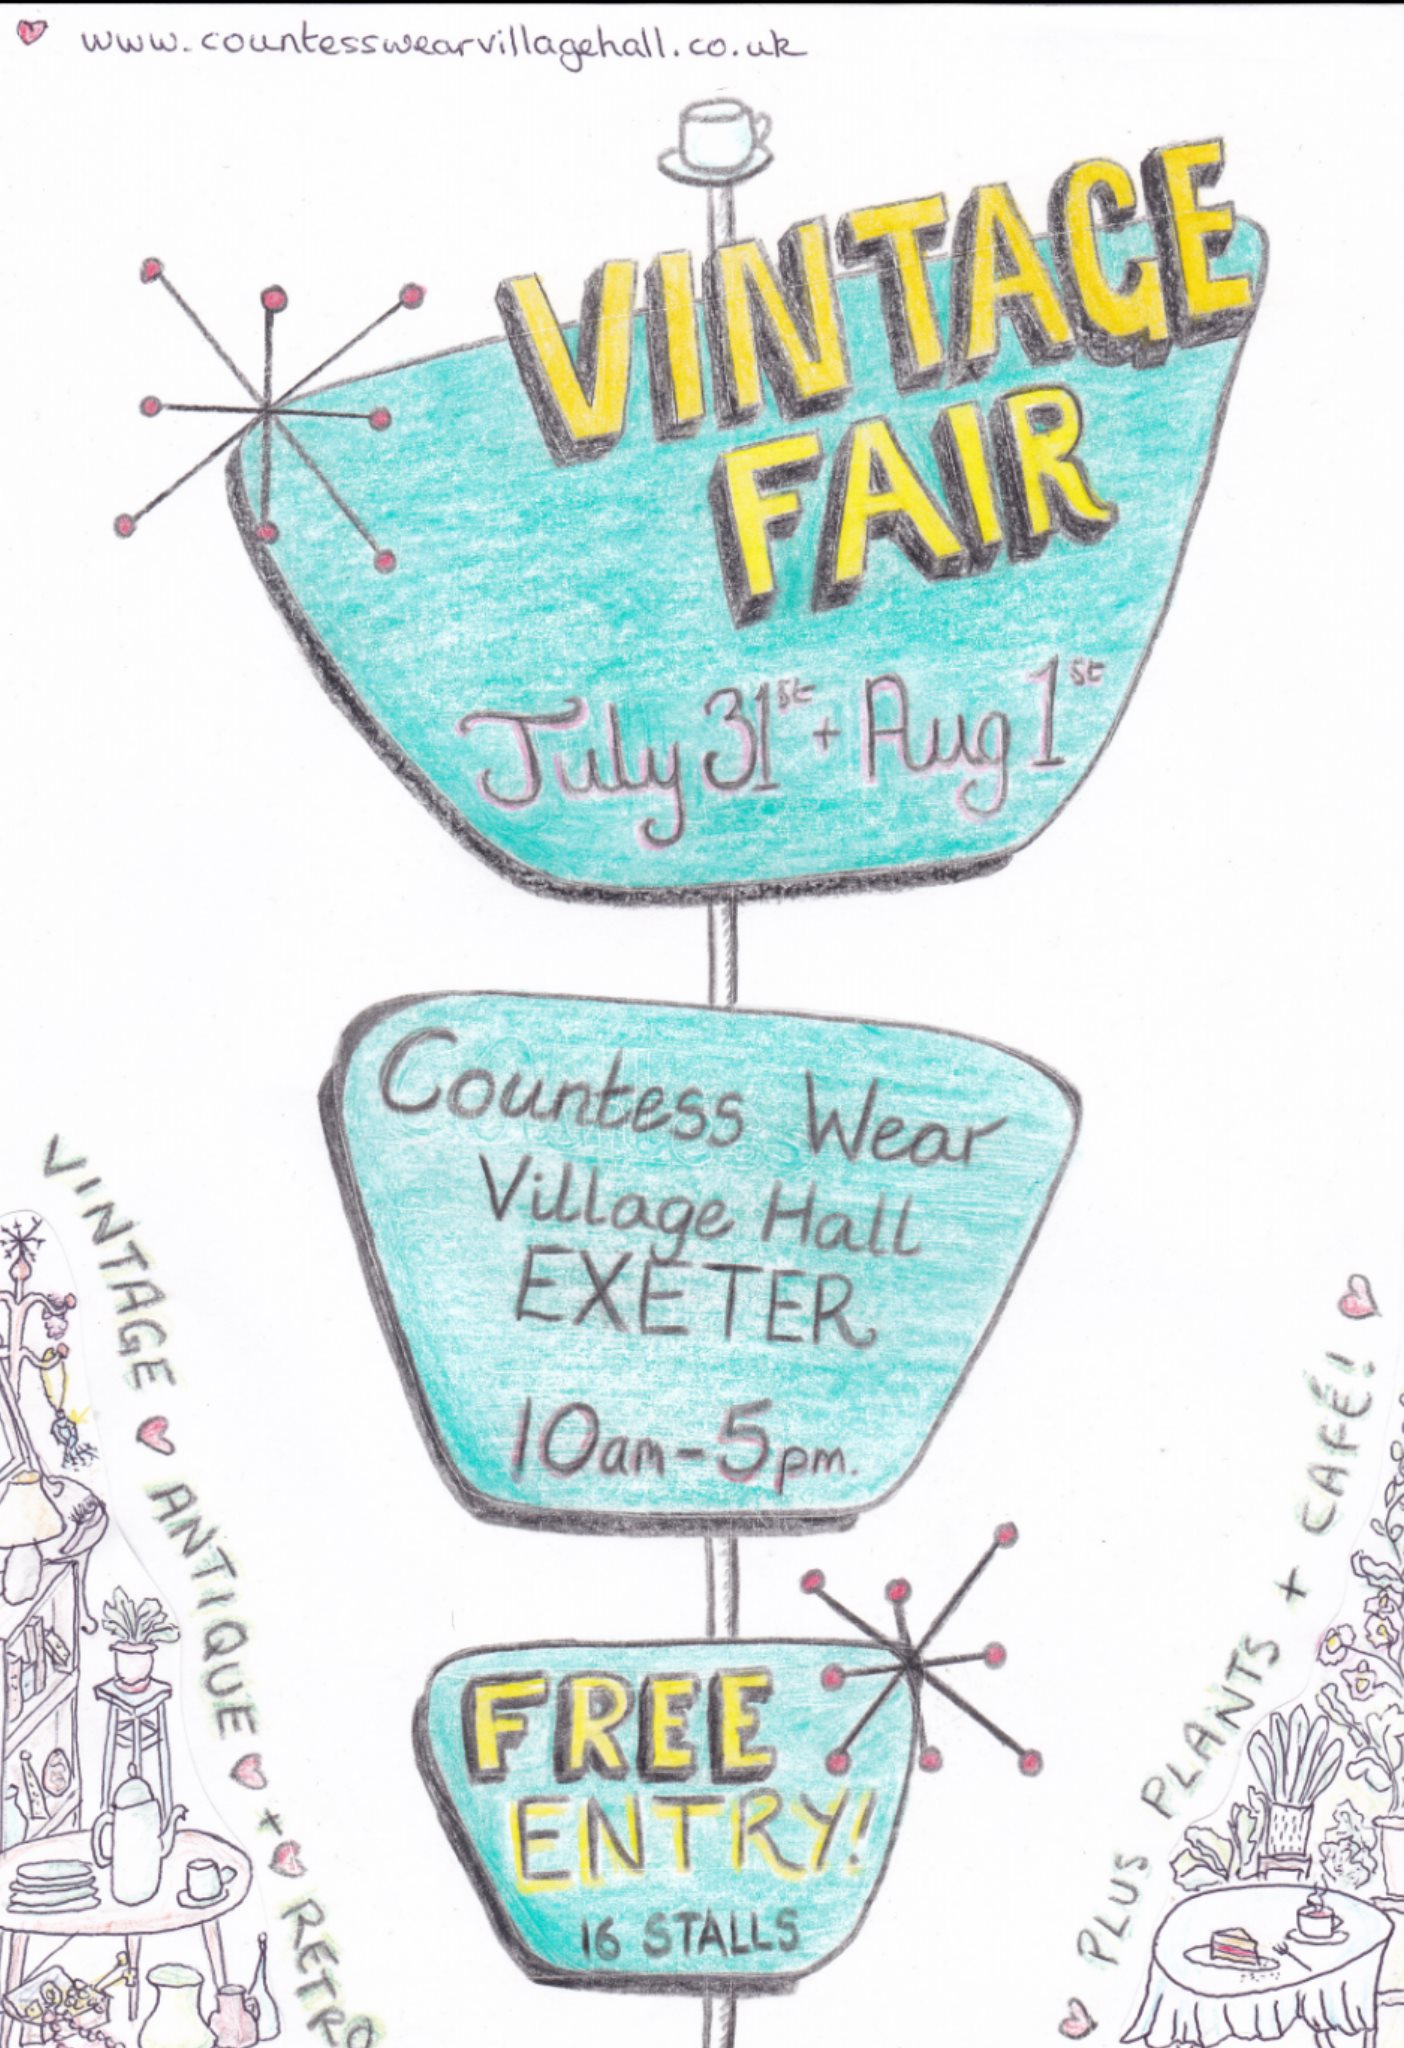 www.countesswearvillagehall.co.uk
VINTAGE
FAIR
July 31st + Aug 1st
Countess Wear
Village Hall
EXETER
10am - 5pm.
FREE
ENTRY!
16 STALLS
VINTAGE ♥ ANTIQUE ♥ + ♥ RETRO
♥ PLUS PLANTS + CAFÉ! ♥